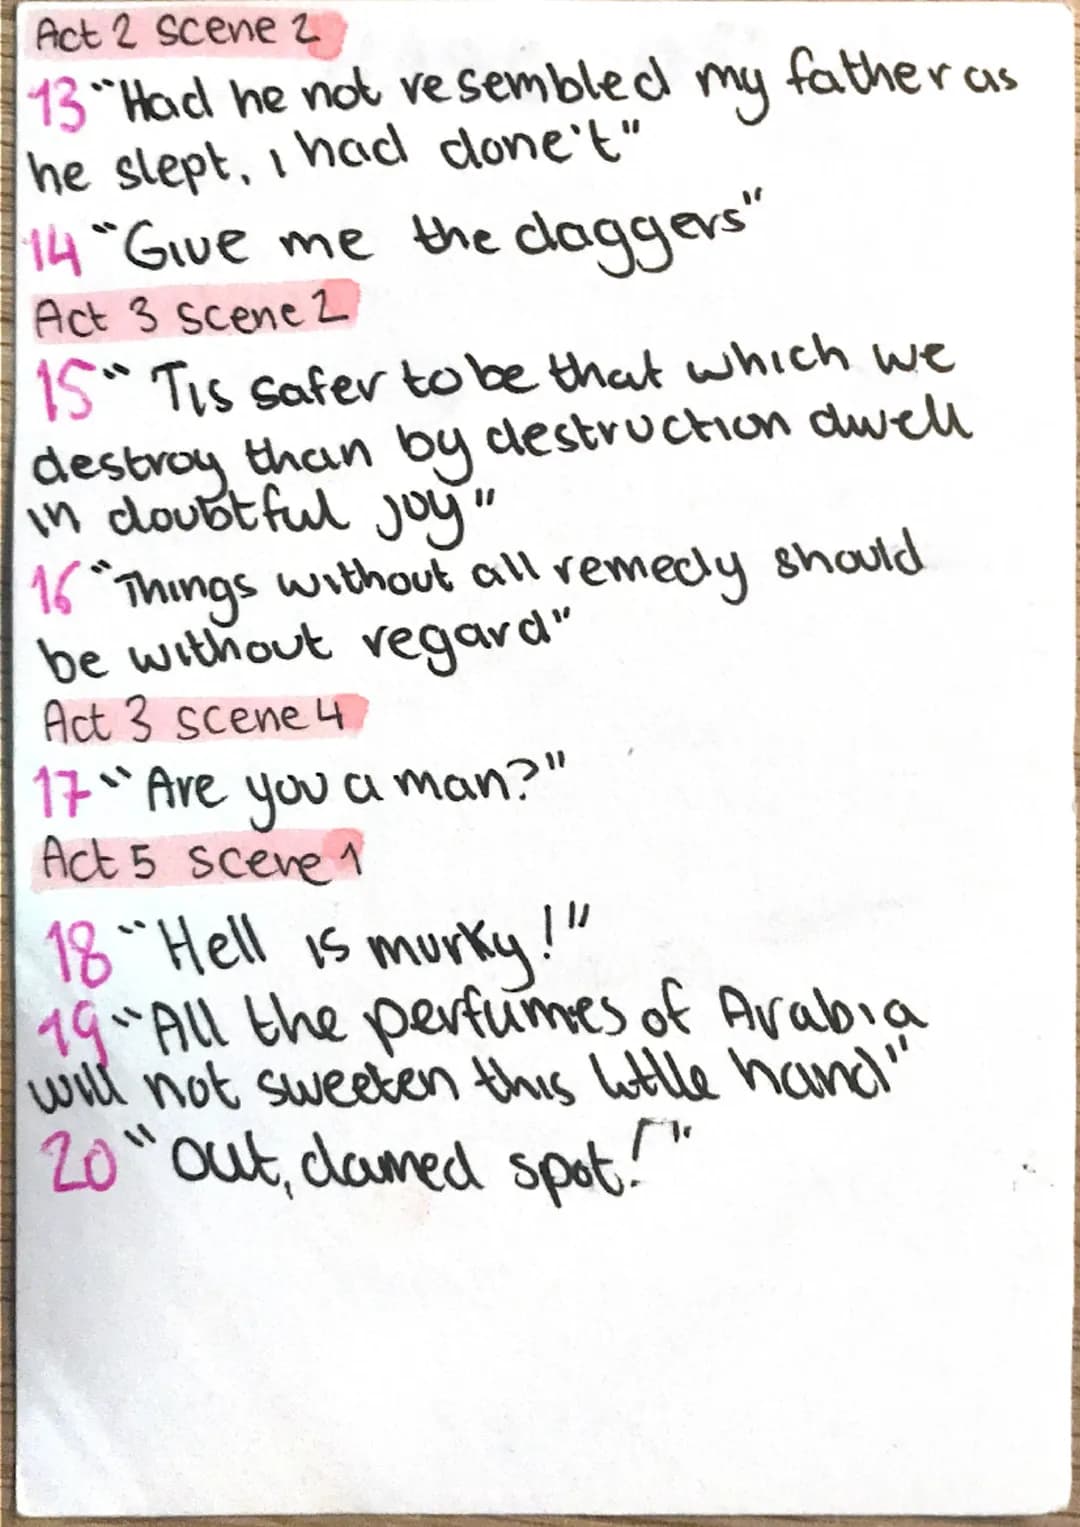 Act 2 scene 2
13 "Had he not resembled my father as
he slept, i had done't"
14 "Give me the daggers"
Act 3 scene 2
15 "Tis safer to be that which we
destroy than by destruction dwell
in doubtful joy"
16 "Things without all remedy should
be without regard"
Act 3 scene 4
17 "Are you a man?"
Act 5 scene 1
18 "Hell is murky!"
19 "All the perfumes of Arabia
will not sweeten this little hand"
20 "Out, damed spot!"